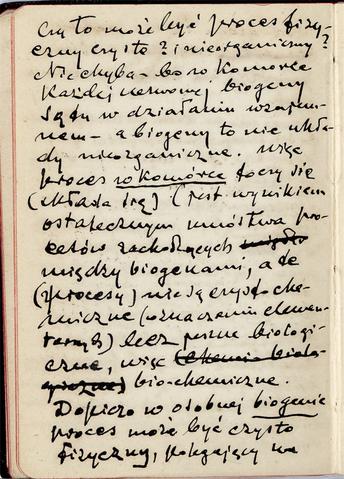 Czy to może być proces fizy-
czny czysto? i nieorganiczny?
Nie chyba – bo w komórce
każdej nerwowej biogeny
są tu w działaniu wzajem-
nem – a biogeny to nie ukła-
dy nieorganiczne. Więc
proces w komórce toczy się
(składa się) (jest wynikiem
ostatecznym mnóstwa pro-
cesów zachodzących
między biogenami, a te
(procesy) nie są czysto che-
miczne (oznaczanie elemen-
tarnych) lecz pewne biologi-
czne, więc (chemio-biolo-
giczne) bio-chemiczne.
Dopiero w osobnej biogenie
proces może być czysto
fizyczny, polegający na